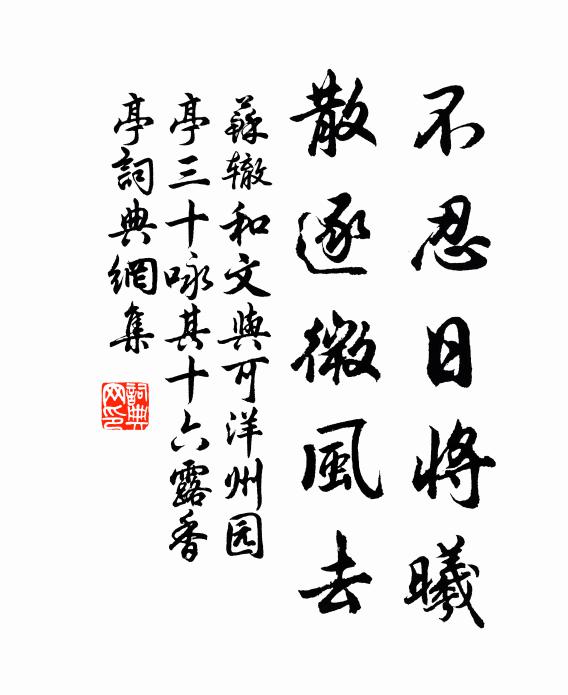 不忍日將曦
散逐微風去
蘇辙和文與可洋州园
亭三十咏其十六露香
亭詞典網集
詞典網印